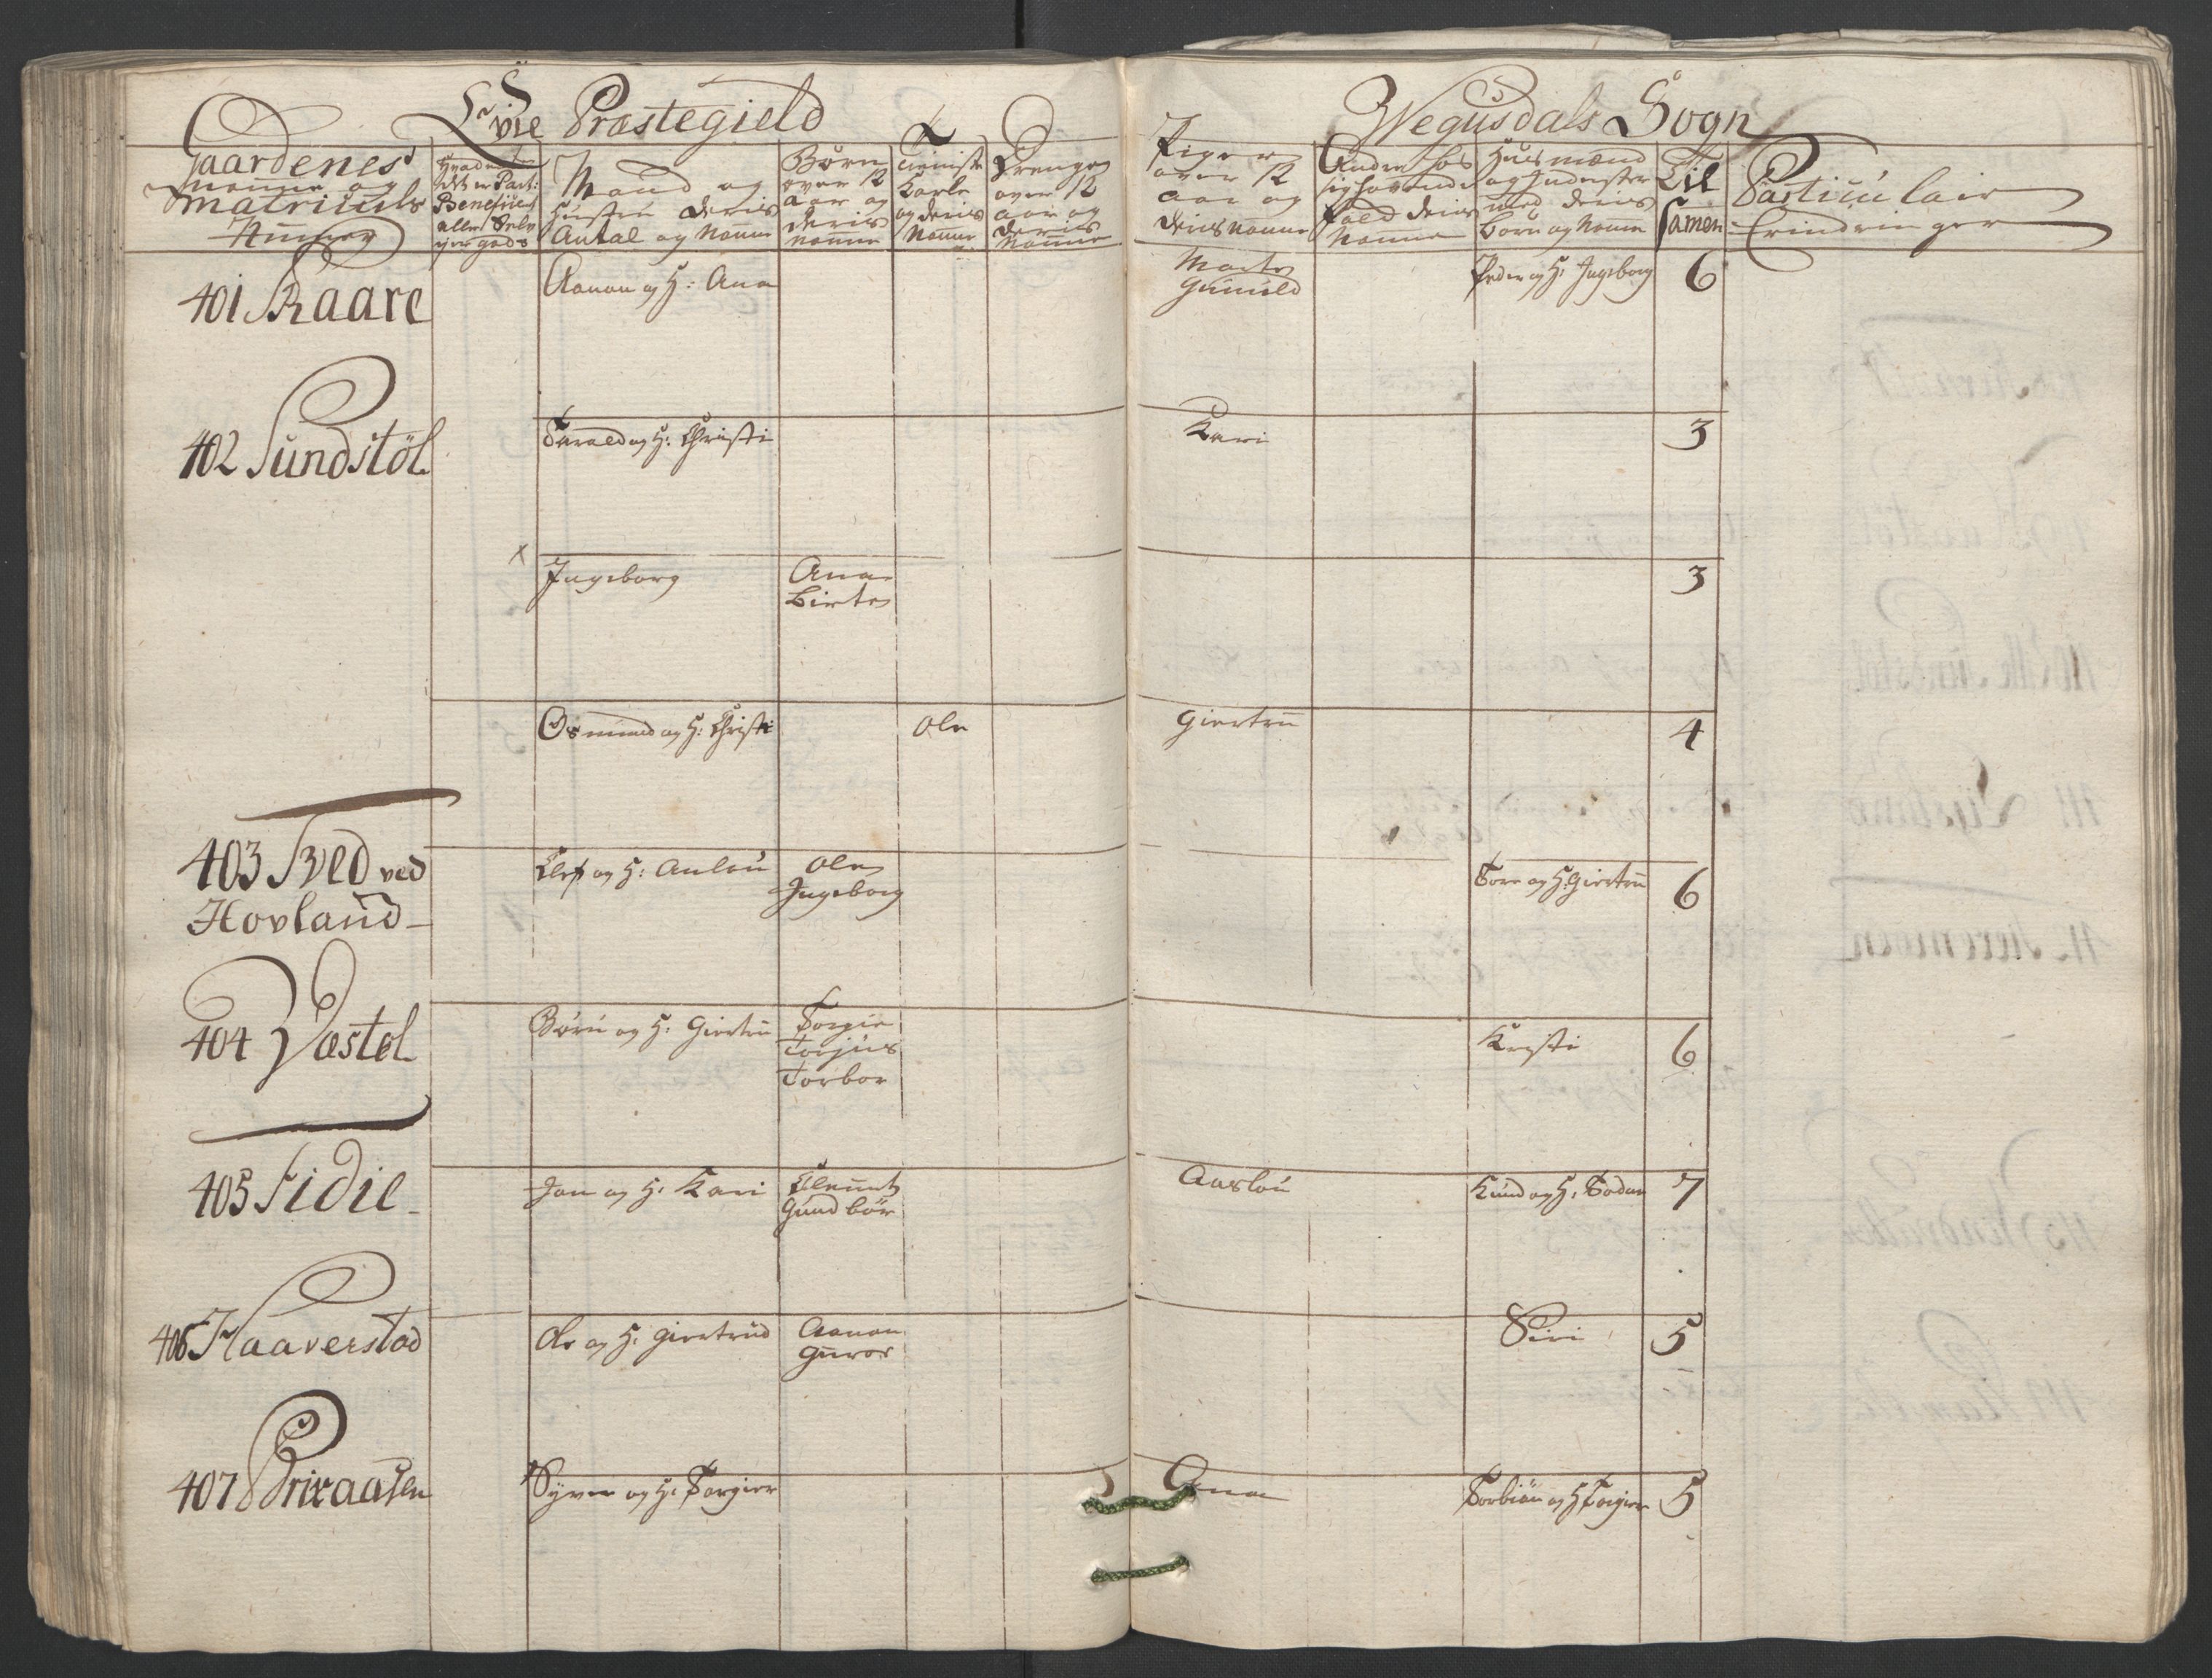 Evie Præstegield
Wegusdals Sogn
Gaardenes
Nafne og
Matriculs
Numrer
Hvad
det er Part:
Beneficert
aller Selv
eyer gods
Mand og
Hustru Deris
Antal og Nafne
Børn
over 12
Aar og
Deris
Nafne
Tieniste
Karle
og deris
Nafne
Drenge
over 12
Aar og
deris
Nafne
Piger
over 12
Aar og
deris Nafne
Andre hos
sig havende
Folk deris
Nafne
Husmænd
og Inderster
med deris
Børn og Nafne
Til
samen
Particulair
Erindringer
401 Raare
Aanon og H: Ana
Marte
Gunild
Peder og H: Ingeborg
6
402 Sundstöl
Tarald og H: Christi
Kari
3
x
Ingeborg
Ana
Birte
3
Osmund og H: Christi
Ole
Giertru
4
403 Tved ved
Hovland
Elef og H: Anlou
Ole
Ingeborg
Tore og H: Giertru
6
404 Væstöl
Böru og H: Giertru
Torgie
Torjus
Torbor
Kristi
6
405 Fidie
Jon og H: Kari
Clemet
Gundbör
Aaslou
Knud og H: Todne
7
406 Haaverstad
Ole og H: Giertrud
Aanon
Guroe
Siri
5
407 Prixaasen
Syver og H: Torgier
Ana
Torbiön og H Torgier
5